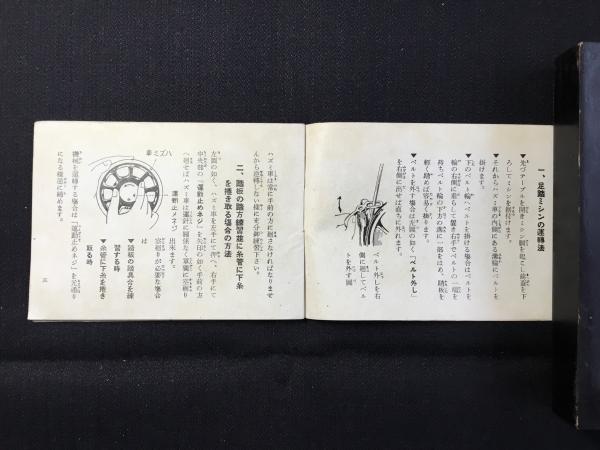 一、足踏ミシンの運轉法
▼先づテーブルを開きミシン頭を起こし前蓋を下
ろしてミシンを据付けます。
▼それからハズミ車の内側にある溝輪にベルトを
掛けます。
▼下のベルト輪へベルトを掛ける場合はベルトを
輪の右側に垂らして置き右手でベルトの一端を
持ちベルト輪の下の溝に一部をはめ、踏板を
輕く踏めば容易く掛ります。
▼ベルトを外す場合は左圖の如く「ベルト外し」
を右側に出せば直ちに外れます。
ベルト外しを右
側に廻してベル
トを外す圖
ハズミ車は常に手前の方に廻さなければなりませ
んから逆轉しない樣に充分御練習下さい。
二、踏板の踏方練習並に糸管に下糸
を捲き取る場合の方法
左圖の如く、ハズミ車を左手にて押へ、右手にて
中央部の「運動止めネジ」を矢印の如く手前の方
へ廻せばハズミ車は運針に關係なく單獨に空廻り
出來ます。
空廻りが必要な場合
は
▼踏板の踏具合を練
習する時
▼糸管に下糸を捲き
取る時
機械を運轉する場合は「運動止めネジ」を元通り
になる樣逆に締めます。
ハズミ車
運動止メネヂ
三